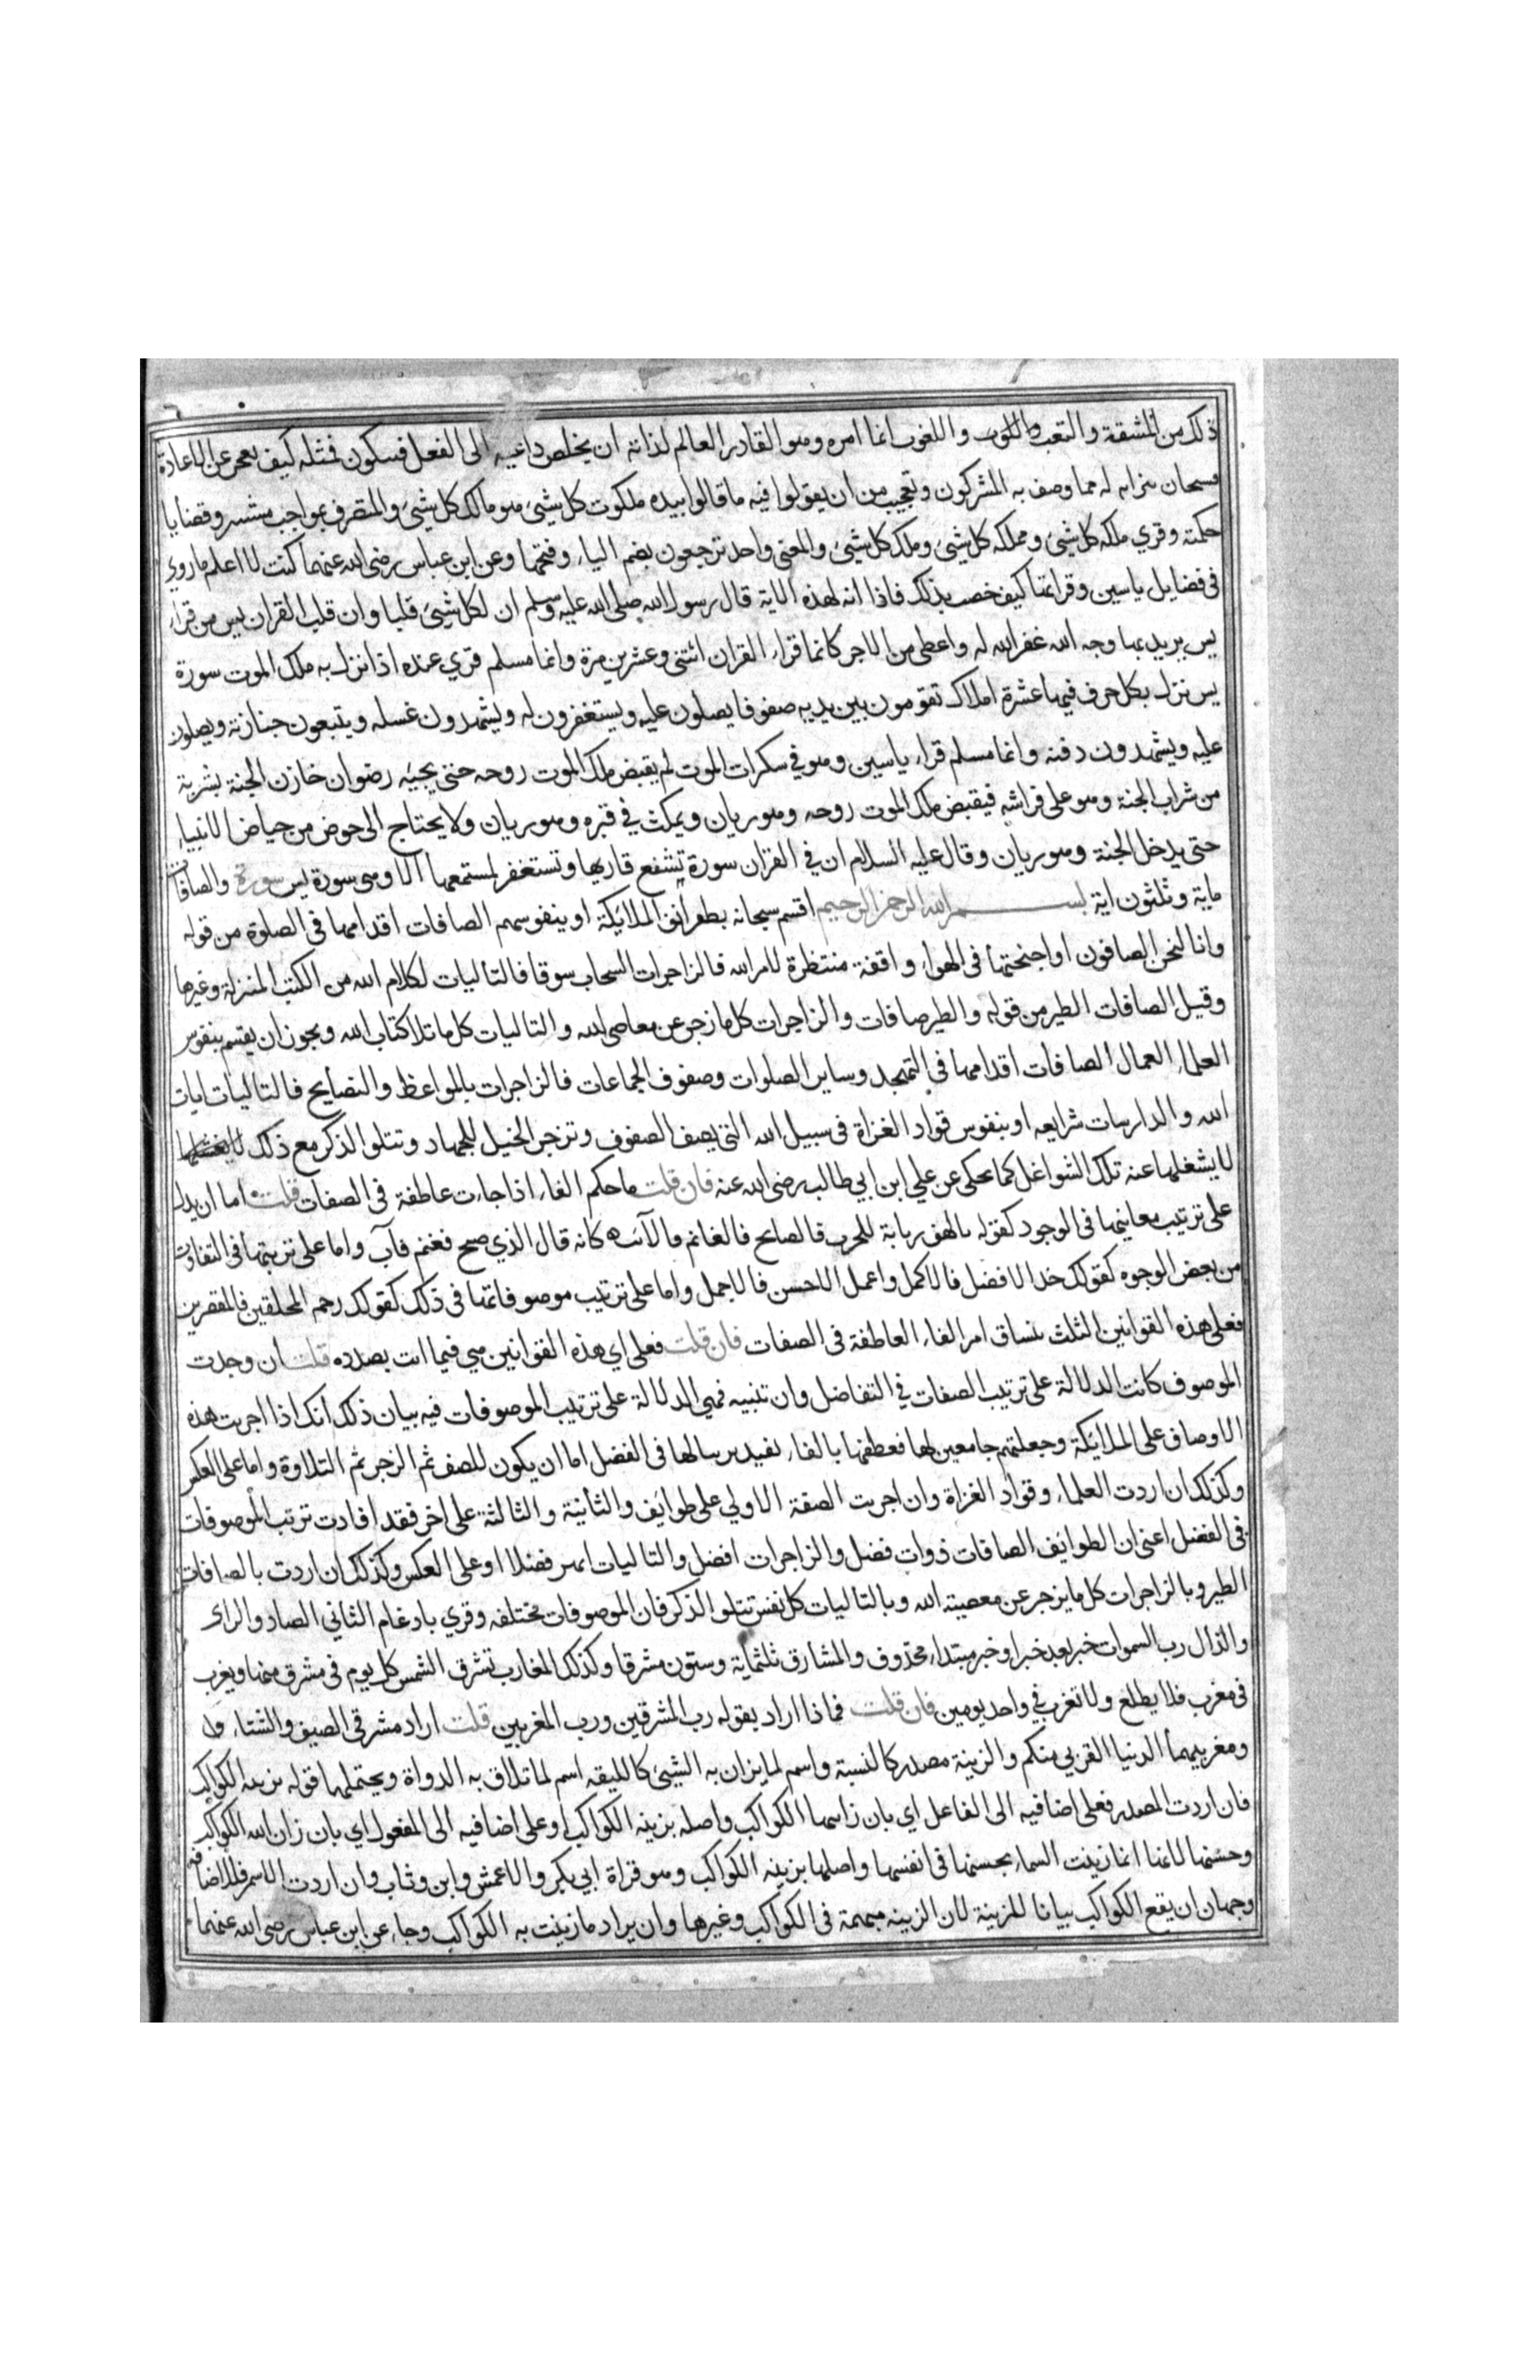 ذلك من المشقة والتعب واللغوب انما امره وهو القادر العالم لذاته ان يخلص داعيه الى الفعل فيتكون فمثله كيف يعجز عن الاعادة
فسبحان تنزيه له مما وصف به المشركون وتعجيب من ان يقولوا فيه ما قالوا بيده ملكوت كل شيئ هو مالك كل شيئ والمتصرف بمواجب مشيته وقضايا
حكمته وقري ملكة كل شيئ ومملكة كل شيئ وملك كل شيئ والمعنى واحد ترجعون بضم التاء وفتحها وعن ابن عباس رضى الله عنهما كنت لا اعلم ما روي
فى فضايل ياسين وقراءتها كيف خصت بذلك فاذا انه لهذه الاية قال رسول الله صلى الله عليه وسلم ان لكل شيئ قلبا وان قلب القران يس من قراء
يس يريد بها وجه الله غفر الله له واعطى من الاجر كانما قراء القران اثنتى وعشرين مرة وانما مسلم قري عنده اذا نزل به ملك الموت سورة
يس نزل بكل حرف فيها عشرة املاك تقومون بين يديه صفوفا يصلون عليه ويستغفرون له ويشهدون غسله ويتبعون جنازته ويصلون
عليه ويشهدون دفنه وانما مسلم قراء ياسين وهو في سكرات الموت لم يقبض ملك الموت روحه حتى يجيئه رضوان خازن الجنة بشربة
من شراب الجنة وهو على فراشه فيقبض ملك الموت روحه وهو ريان ويمكث في قبره وهو ريان ولا يحتاج الى حوض من حياض الانبياء
حتى يدخل الجنة وهو ريان وقال عليه السلام ان في القران سورة تشفع قاريها وتستغفر لمستمعها الا وهى سورة يس سورة والصافات
ماية وثلثون اية بسم الله الرحمن الرحيم اقسم سبحانه بطوائف الملائكة او بنفوسهم الصافات اقدامها فى الصلوة من قوله
وانا لنحن الصافون او اجنحتها فى الهواء واقفة منتظرة لامر الله فالزاجرات السحاب سوقا فالتاليات لكلام الله من الكتب المنزلة وغيرها
وقيل الصافات الطير من قوله والطير صافات والزاجرات كل ما زجر عن معاصى الله والتاليات كل ما تلا كتاب الله ويجوز ان يقسم بنفوس
العلماء العمال الصافات اقدامها فى التهجد وساير الصلوات وصفوف الجماعات فالزاجرات بالمواعظ والنصايح فالتاليات ايات
الله والدارسات شرايعه او بنفوس قواد الغزاة فى سبيل الله التى يصف الصفوف وتزجر الخيل للجهاد وتتلوا الذكر مع ذلك
لا يشغلها عنه تلك الشواغل كما يحكى عن علي ابن ابي طالب رضى الله عنه فان قلت ما حكم الفاء اذا جاءت عاطفة فى الصفات قلت اما ان يدل
على ترتيب معانيها فى الوجود كقوله يالهف زيابة للحرب فالصابح فالغانم فالآئب كانه قال الذي صبح فغنم فآب واما على ترتيبها فى التفاوت
من بعض الوجوه كقولك خذ الافضل فالاكمل واعمل الاحسن فالاجمل واما على ترتيب موصوفاتها فى ذلك كقولك رحم المحلقين فالمقصرين
فعلى هذه القوانين الثلث ينساق امر الفاء العاطفة فى الصفات فان قلت فعلى اي هذه القوانين هي فيما انت بصدده قلت ان وجدت
الموصوف كانت الدلالة على ترتيب الصفات في التفاضل وان تثنيه فهي الدلالة على ترتيب الموصوفات فيه بيان ذلك انك اذا اجريت هذه
الاوصاف على الملائكة وجعلتهم جامعين لها فعطفها بالفاء يفيد ترتبا لها فى الفضل اما ان يكون للصف ثم الزجر ثم التلاوة واما على العكس
وكذلك ان اردت العلماء وقواد الغزاة وان اجريت الصفة الاولي على طوائف والثانية والثالثة على اخر فقد افادت ترتب الموصوفات
فى الفضل اعنى ان الطوائف الصافات ذوات فضل والزاجرات افضل والتاليات ابهر فضلا او على العكس وكذلك ان اردت بالصافات
الطير وبالزاجرات كل ما يزجر عن معصيته الله وبالتاليات كل نفس تتلوا الذكر فان الموصوفات مختلفه وقري بادغام الثاني الصاد والزاى
والذال رب السموات خبر بعد خبر او خبر مبتداء محذوف والمشارق ثلثماية وستون مشرقا وكذلك المغارب تشرق الشمس كل يوم فى مشرق منها ويغرب
فى مغرب فلا يطلع ولا تغرب في واحد يومين فان قلت فماذا اراد بقوله رب المشرقين ورب المغربين قلت اراد مشرقى الصيف والشتاء
ومغربيهما الدنيا القربي منكم والزينة مصدر كالنسبة واسم لما يزان به الشيئ كالليقه اسم لما تلاق به الدواة ويحتملها قوله بزينه الكواكب
فان اردت المصدر فعلى اضافيه الى الفاعل اي بان زانتها الكواكب واصله بزينه الكواكب او على اضافيه الى المفعول اي بان زان الله الكواكب
وحسنها لانها انما زينت السماء بحسنها فى انفسها واصلها بزينه الكواكب وهو قراة ابي بكر والاعمش وابن وثاب وان اردت الاسم فللاضافه
وجهان ان يقع الكواكب بيانا للزينة لان الزينه مبهمة فى الكواكب وغيرها وان يراد ما زينت به الكواكب وجاء عن ابن عباس رضى الله عنهما